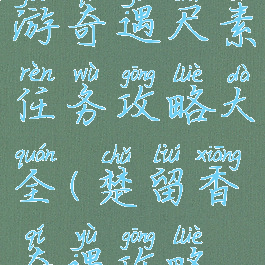 游奇遇尺素
rèn wù gōng lüè dà
任务攻略大
quán chǔ liú xiāng
全(楚留香
qí yù gōng lüè
奇遇攻略